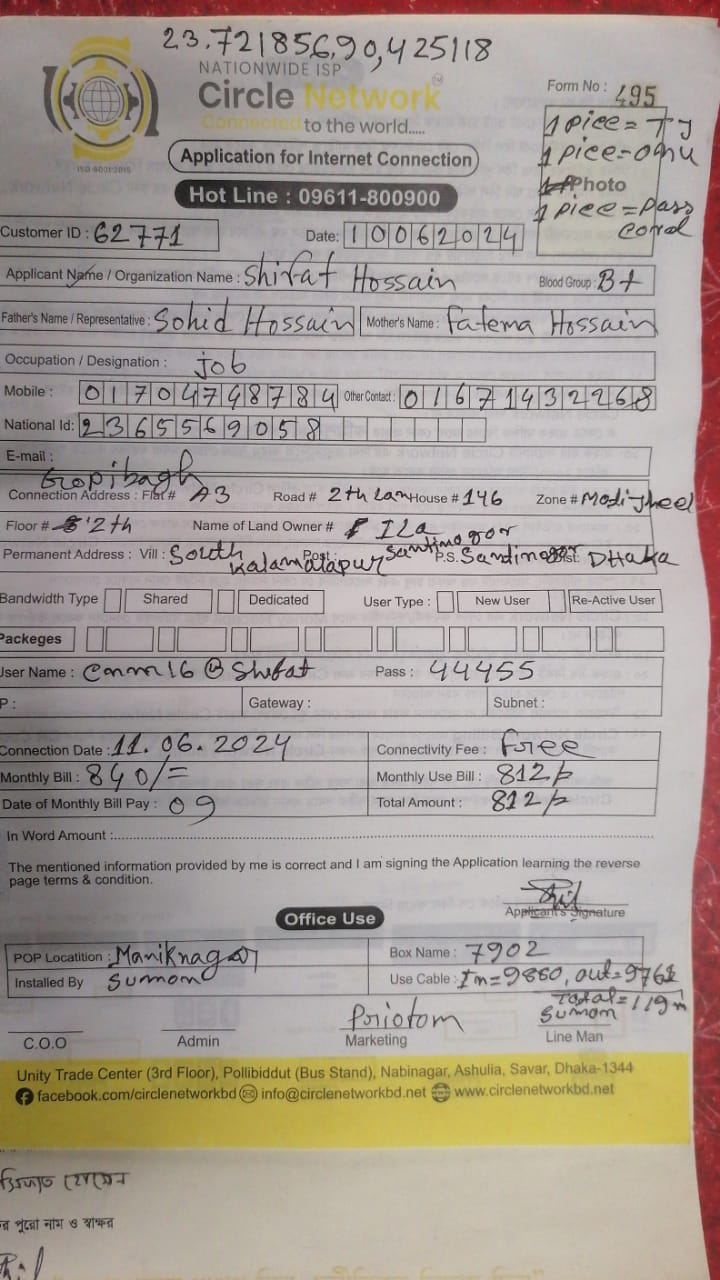 23.721856,90,425118
NATIONWIDE ISP
Circle Network
Connected to the world.....
ISO 9001:2015
Application for Internet Connection
Hot Line : 09611-800900
Form No : 495
1 piece = TJ
1 piece = onu
Photo
1 piece = pass
cord
Customer ID : 62771 Date: 10062024
Applicant Name / Organization Name : Shifat Hossain Blood Group : B+
Father's Name / Representative : Sohid Hossain Mother's Name : Fatema Hossain
Occupation / Designation : job
Mobile : 01704748784 Other Contact : 01671432268
National Id: 2365569058
E-mail :
Gopibagh
Connection Address : Flat# A3 Road # 2th Lan House # 146 Zone # Modijheel
Floor # 2th Name of Land Owner # Ila
Permanent Address : Vill : South Kalamalapur Post : Santinogor P.S. Santinogor Dist: DHaka
Bandwidth Type Shared Dedicated User Type : New User Re-Active User
Packeges
User Name : cnm16@Shifat Pass : 44455
P : Gateway : Subnet :
Connection Date : 11.06.2024 Connectivity Fee : free
Monthly Bill : 840/= Monthly Use Bill : 812/-
Date of Monthly Bill Pay : 09 Total Amount : 812/-
In Word Amount :
The mentioned information provided by me is correct and I am signing the Application learning the reverse
page terms & condition.
Applicant's Signature
Office Use
POP Locatition : Maniknagar Box Name : 7902
Installed By Sumon Use Cable : In=9880, out=9761
Total=119m
Priotom Sumon
C.O.O Admin Marketing Line Man
Unity Trade Center (3rd Floor), Pollibiddut (Bus Stand), Nabinagar, Ashulia, Savar, Dhaka-1344
facebook.com/circlenetworkbd info@circlenetworkbd.net www.circlenetworkbd.net
হোসেন
পুরো নাম ও স্বাক্ষর